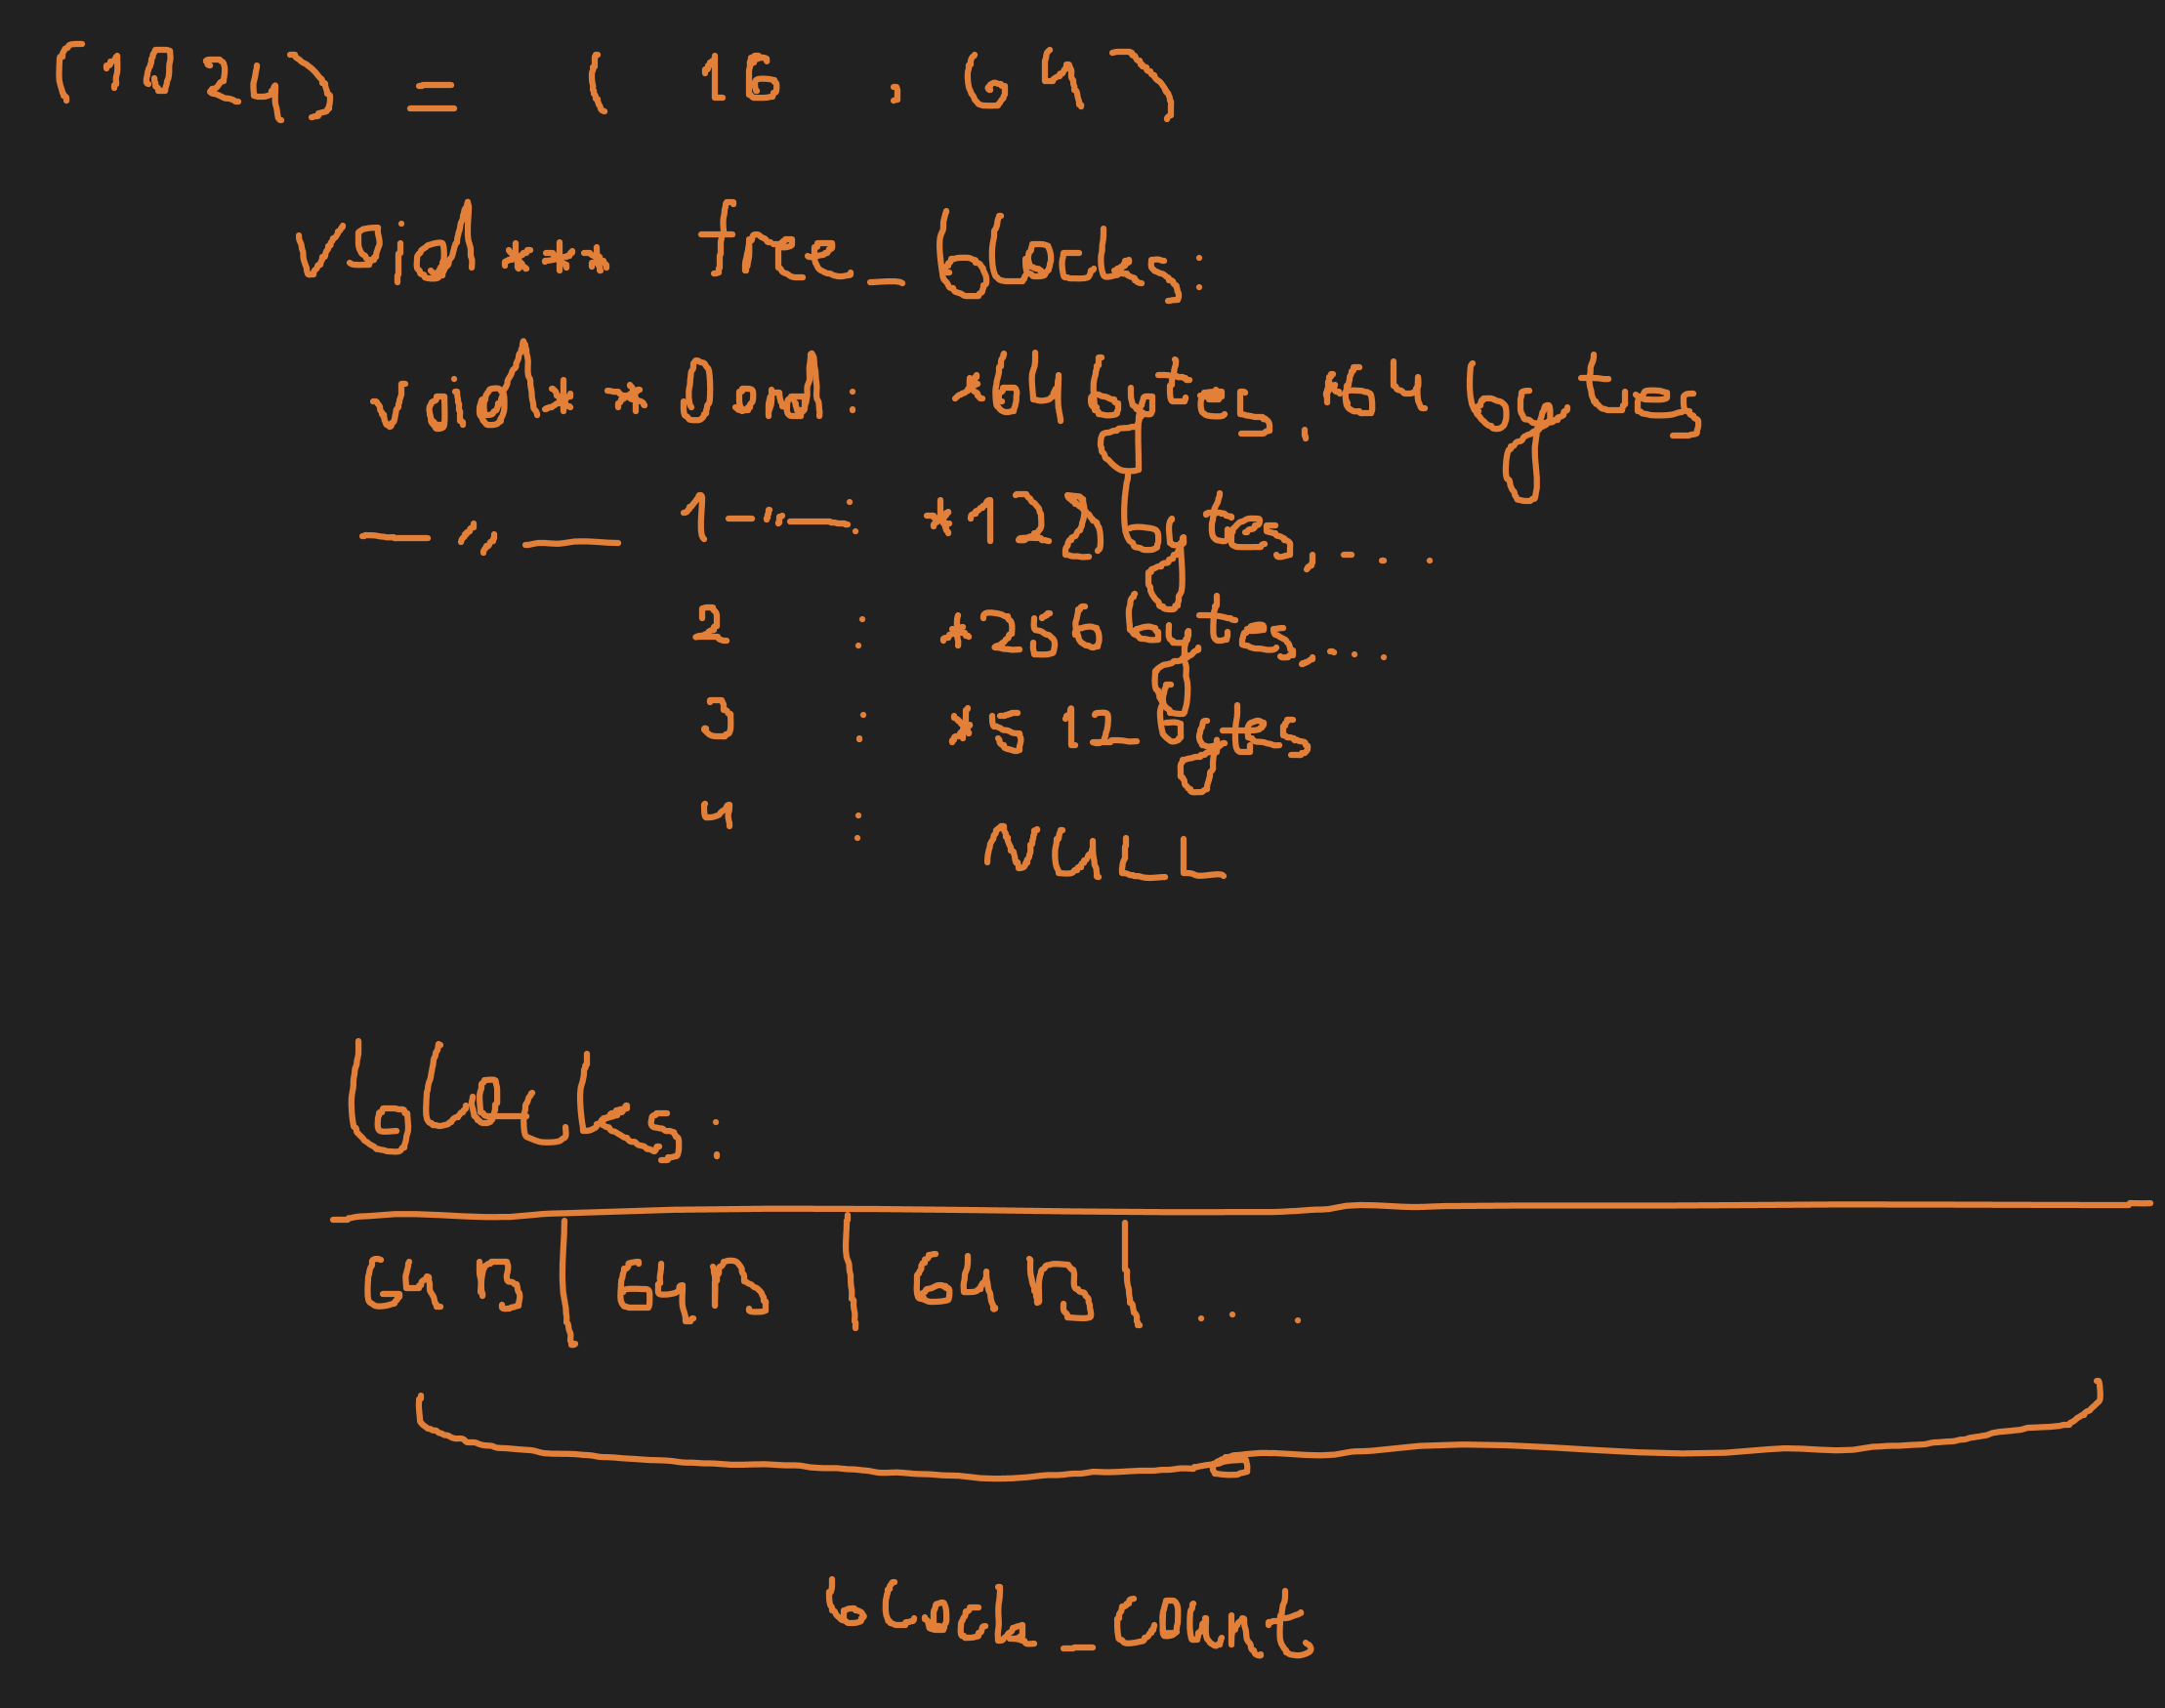 (1024) = ( 16 , 64 )
void*** free_blocks:
void** 0and: *64bytes, *64 bytes
— ,, — 1-,,—: *128bytes, ...
2 : *256 bytes, ...
3 : *512 bytes
4 : NULL
blocks:
64B | 64B | 64B | ...
block_count